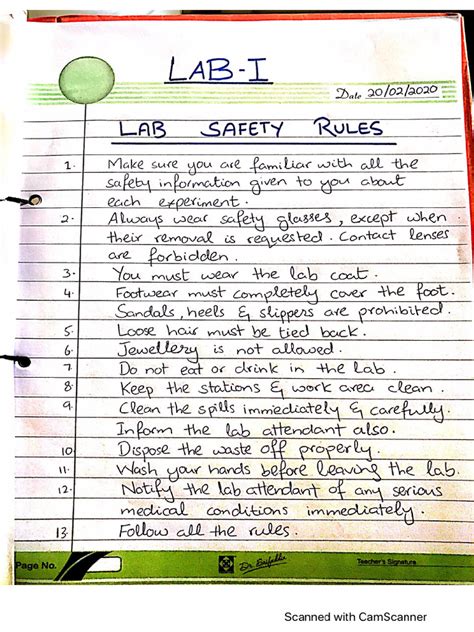 LAB-I
Date 20/02/2020
LAB SAFETY RULES
1. Make sure you are familiar with all the
safety information given to you about
each experiment.
2. Always wear safety glasses, except when
their removal is requested. Contact lenses
are forbidden.
3. You must wear the lab coat.
4. Footwear must completely cover the foot.
Sandals, heels & slippers are prohibited.
5. Loose hair must be tied back.
6. Jewellery is not allowed.
7 Do not eat or drink in the lab.
8 Keep the stations & work area clean.
9 Clean the spills immediately & carefully.
Inform the lab attendant also.
10 Dispose the waste off properly.
11. Wash your hands before leaving the lab.
12. Notify the lab attendant of any serious
medical conditions immediately.
13. Follow all the rules.
Page No.
Dr.
Teacher's Signature
Scanned with CamScanner